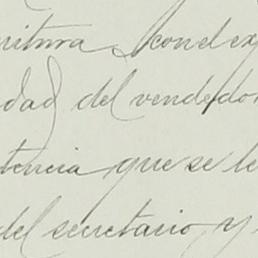 critura y con el ex
idad del vendedor
tencia que se le
del secretario, y